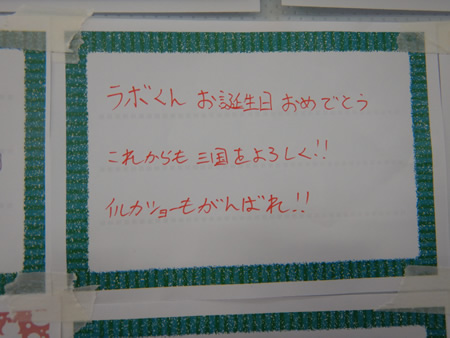 ラボくん お誕生日 おめでとう
これからも 三国をよろしく!!
イルカショーもがんばれ!!